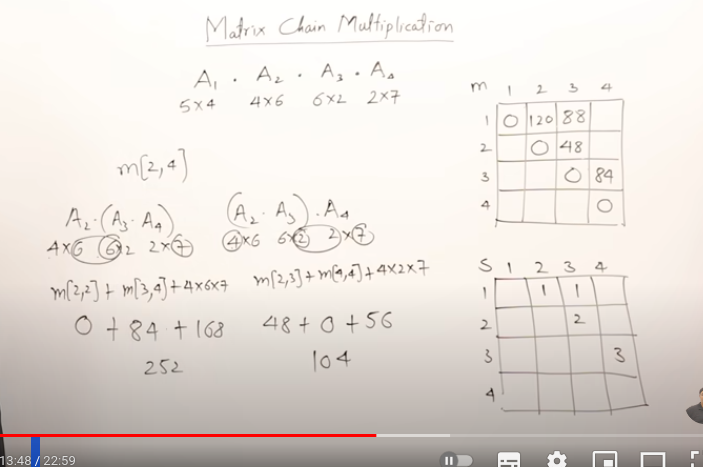 Matrix Chain Multiplication
A₁ . A₂ . A₃ . A₄
5×4 4×6 6×2 2×7
m[2,4]
A₂.(A₃.A₄)
4×6 6×2 2×7
m[2,2] + m[3,4] + 4×6×7
0 + 84 + 168
252
(A₂.A₃).A₄
4×6 6×2 2×7
m[2,3] + m[4,4] + 4×2×7
48 + 0 + 56
104
m 1 2 3 4
1 0 120 88
2 0 48
3 0 84
4 0
S 1 2 3 4
1 1 1
2 2
3 3
4
13:48 / 22:59